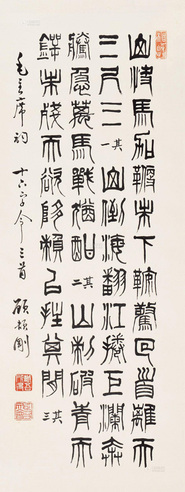 山快馬加鞭未下鞍驚回首離天
三尺三其一山倒海翻江捲巨瀾奔
騰急萬馬戰猶酣其二山刺破青天
鍔未殘天欲墮賴以拄其間其三
毛主席詞十六字令三首顧頡剛